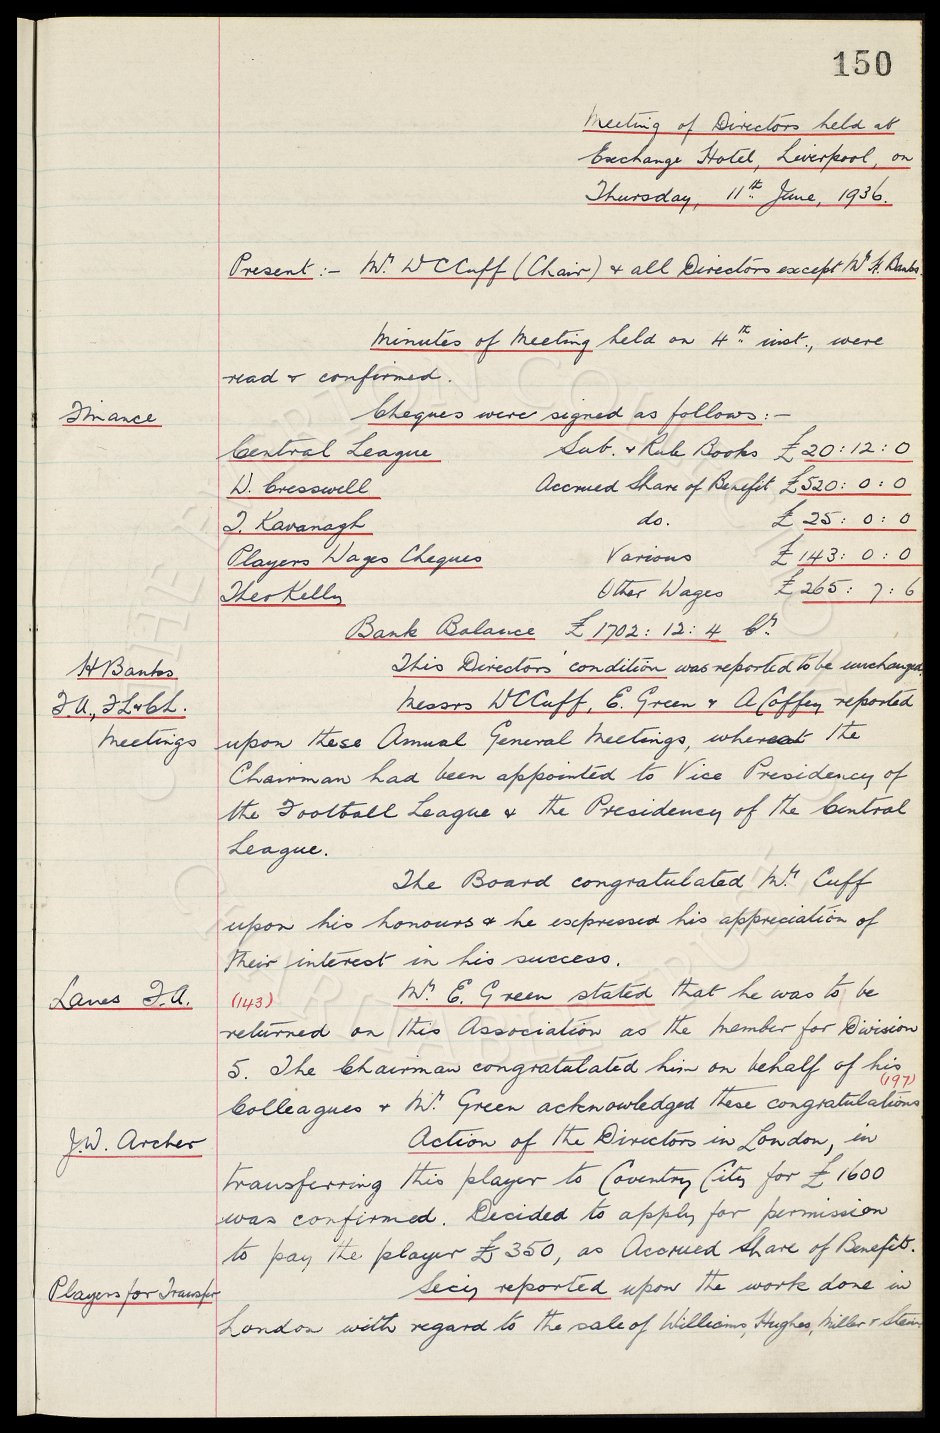 150
Meeting of Directors held at
Exchange Hotel, Liverpool, on
Thursday, 11th June, 1936.
Present :- Mr. W C Cuff (Chair) & all Directors except Mr H. Banks.
Minutes of Meeting held on 4th inst., were
read & confirmed.
Finance
Cheques were signed as follows :-
Central League Sub. & Rule Books £20 : 12 : 0
W. Cresswell Accrued Share of Benefit £520 : 0 : 0
T. Kavanagh do. £25 : 0 : 0
Players Wages Cheques Various £143 : 0 : 0
Theo Kelly Other Wages £265 : 7 : 6
Bank Balance £1702 : 12 : 4 Cr.
H Banks This Directors' condition was reported to be unchanged.
F.A., FL & CL. Messrs WCCuff, E. Green & A Coffey reported
Meetings upon these Annual General Meetings, whereat the
Chairman had been appointed to Vice Presidency of
the Football League & the Presidency of the Central
League.
The Board congratulated Mr. Cuff
upon his honours & he expressed his appreciation of
their interest in his success.
Lancs F.A. (143) Mr. E. Green stated that he was to be
returned on this Association as the member for Division
5. The Chairman congratulated him on behalf of his
(197)
Colleagues & Mr. Green acknowledged these congratulations
J.W. Archer Action of the Directors in London, in
transferring this player to Coventry City for £1600
was confirmed. Decided to apply for permission
to pay the player £350, as Accrued Share of Benefit.
Players for Transfer Secy reported upon the work done in
London with regard to the sale of Williams, Hughes, Miller & Stein